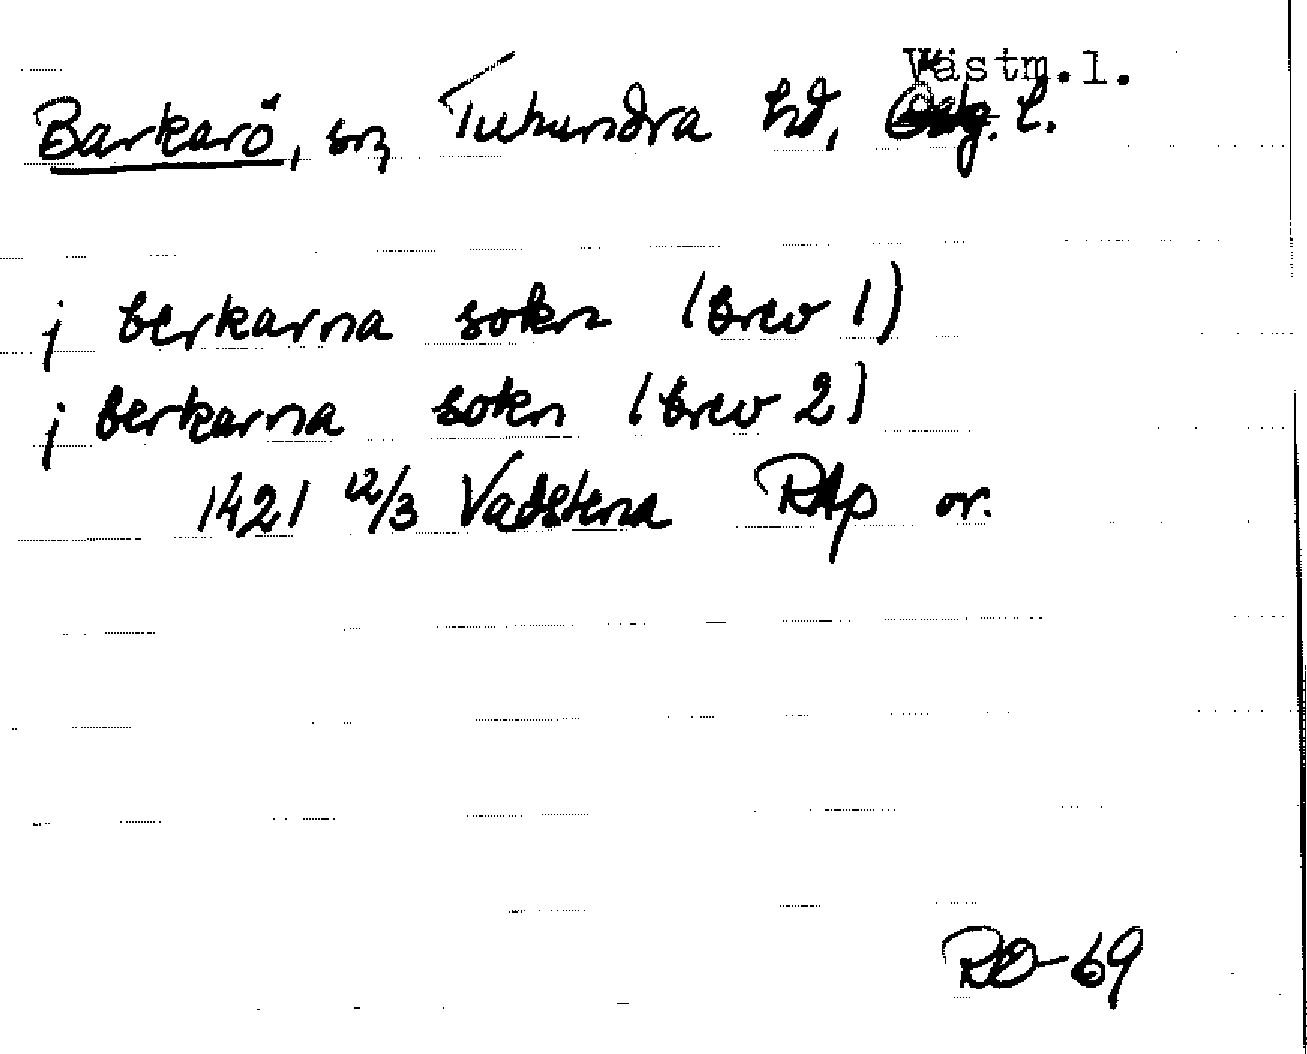 Västm.l.
Barkarö, sn, Tuhundra hd, L.
j berkarna sokn (brev 1)
j berkarna sokn (brev 2)
1421 12/3 Vadstena RAp or.
RO-69